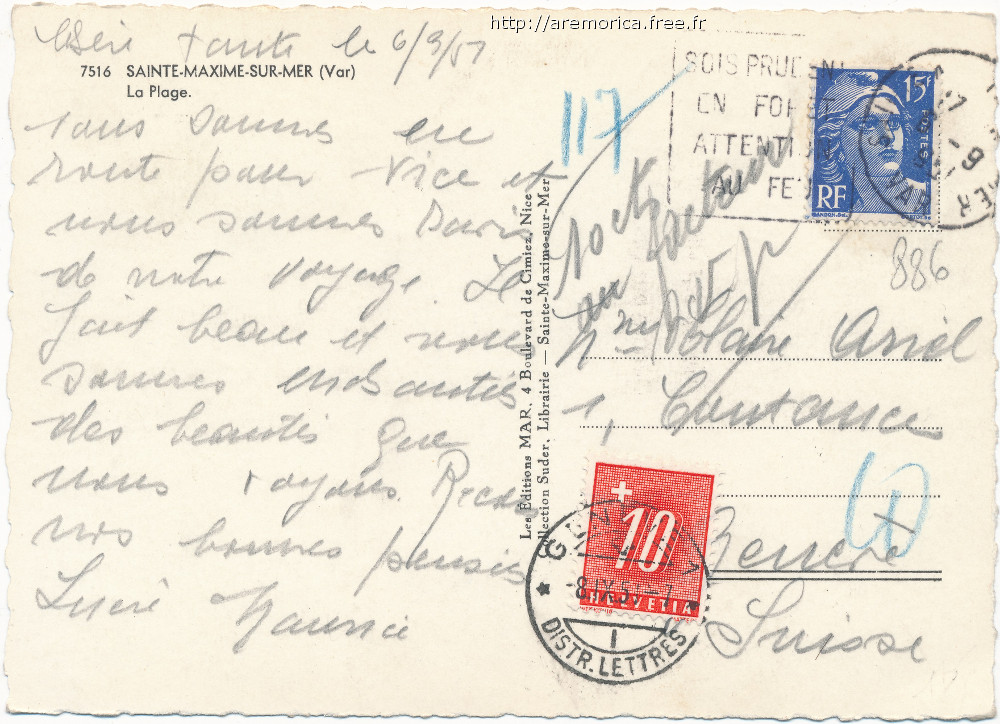 http://aremorica.free.fr
Chère Tante le 6/9/51
7516 SAINTE-MAXIME-SUR-MER (Var)
La Plage.
nous sommes en
route pour Nice et
nous sommes ravis
de notre voyage. Il
fait beau et nous
sommes enchantés
des beautés que
nous voyons. Reçois
nos bonnes pensées
Maurice
Les Éditions MAR, 4 Boulevard de Cimiez, Nice
llection Suder, Librairie — Sainte-Maxime-sur-Mer
117
SOIS PRUDENT
EN FORET
ATTENTION
AU FEU
15F
POSTES
RF
VAR
886
10 cts
au
Mme Ariel
1, Coutance
Genève
Suisse
+
10
HELVETIA
GENÈVE 1
-8.IX.51-7
1
DISTR. LETTRES